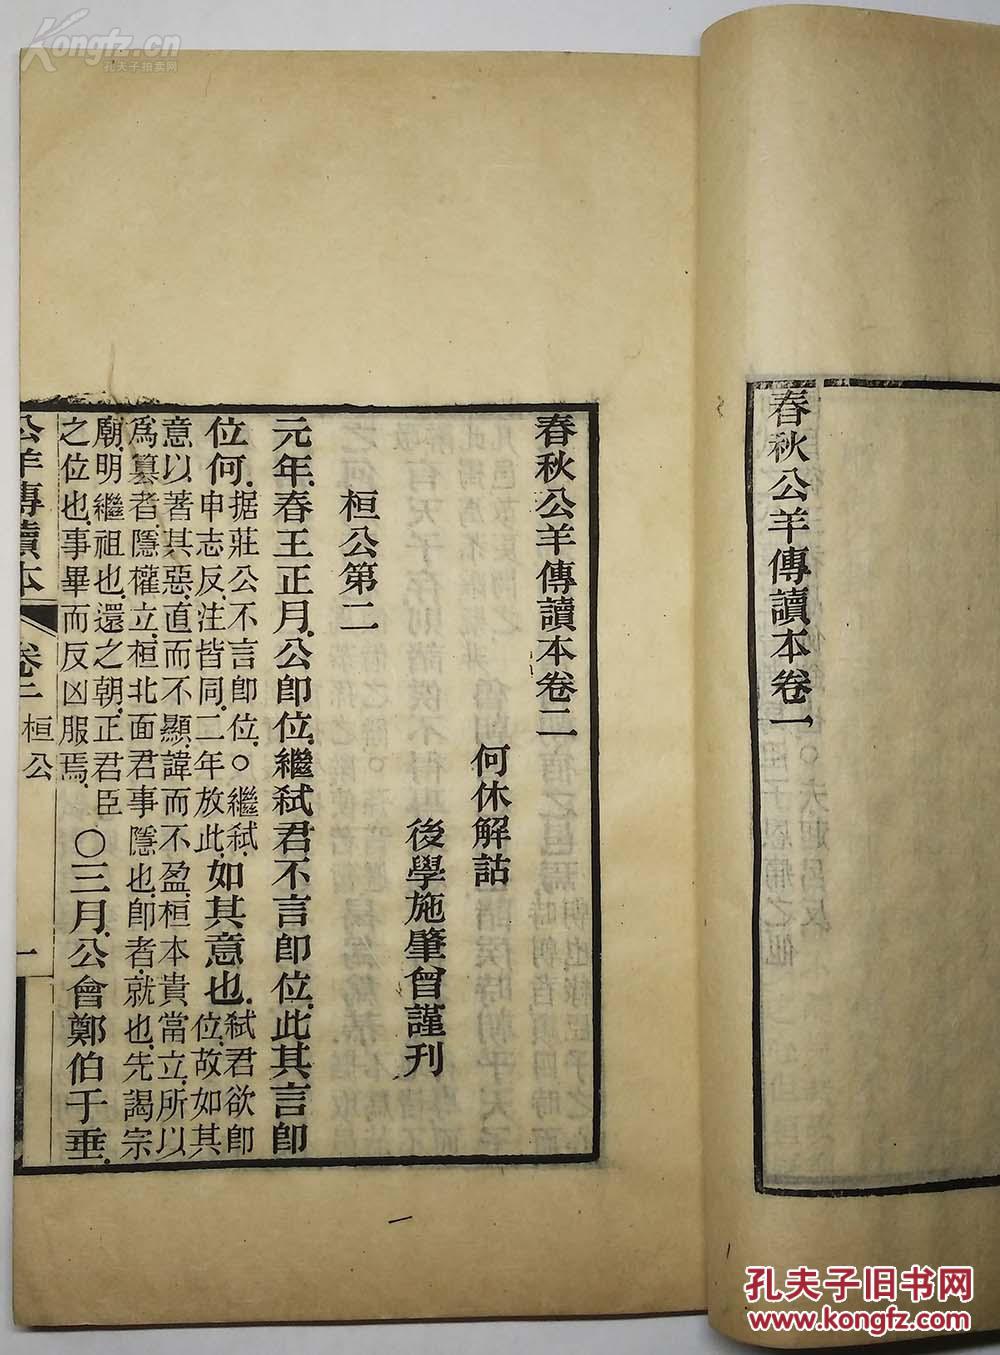 春秋公羊傳讀本卷一
春秋公羊傳讀本卷二
何休解詁
後學施肇曾謹刊
桓公第二
元年.春王正月.公即位.繼弒君不言即位.此其言即
位何.据莊公不言即位.○繼弒.申志反.注皆同.二年放此.如其意也.弒君欲即位.故如其
意.以著其惡.直而不顯.諱而不盈.桓本貴當立.所以
爲篡者.隱權立.桓北面君事隱也.即者.就也.先謁宗
廟.明繼祖也.還之朝.正君臣
之位也.事畢而反凶服焉.○三月.公會鄭伯于垂.
公羊傳讀本 卷二 桓公 一
Kongfz.cn
孔夫子拍卖网
孔夫子旧书网
www.kongfz.com